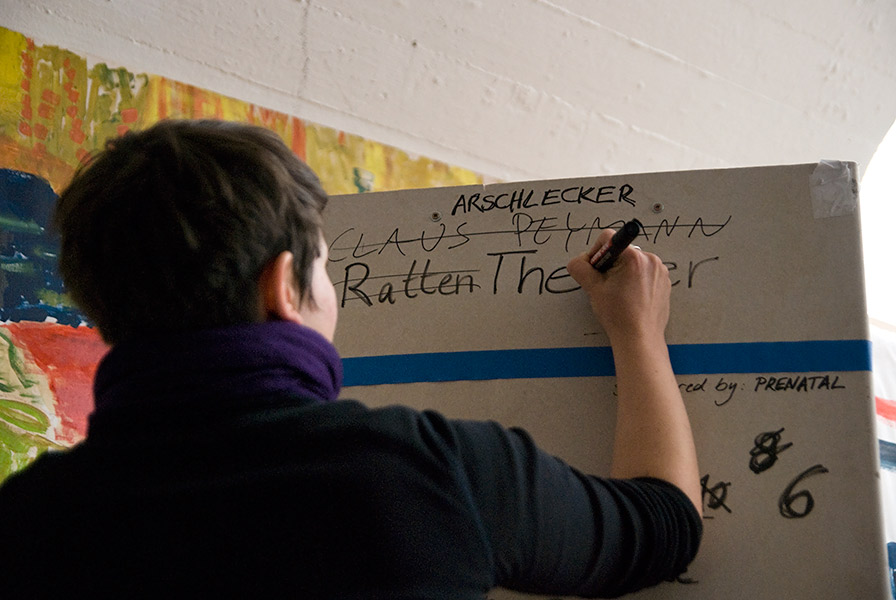 ARSCHLECKER
CLAUS PEYMANN
Ratten
by: PRENATAL
8
6